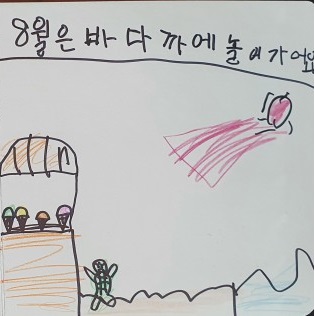 8월은 바다까에 놀여가어요